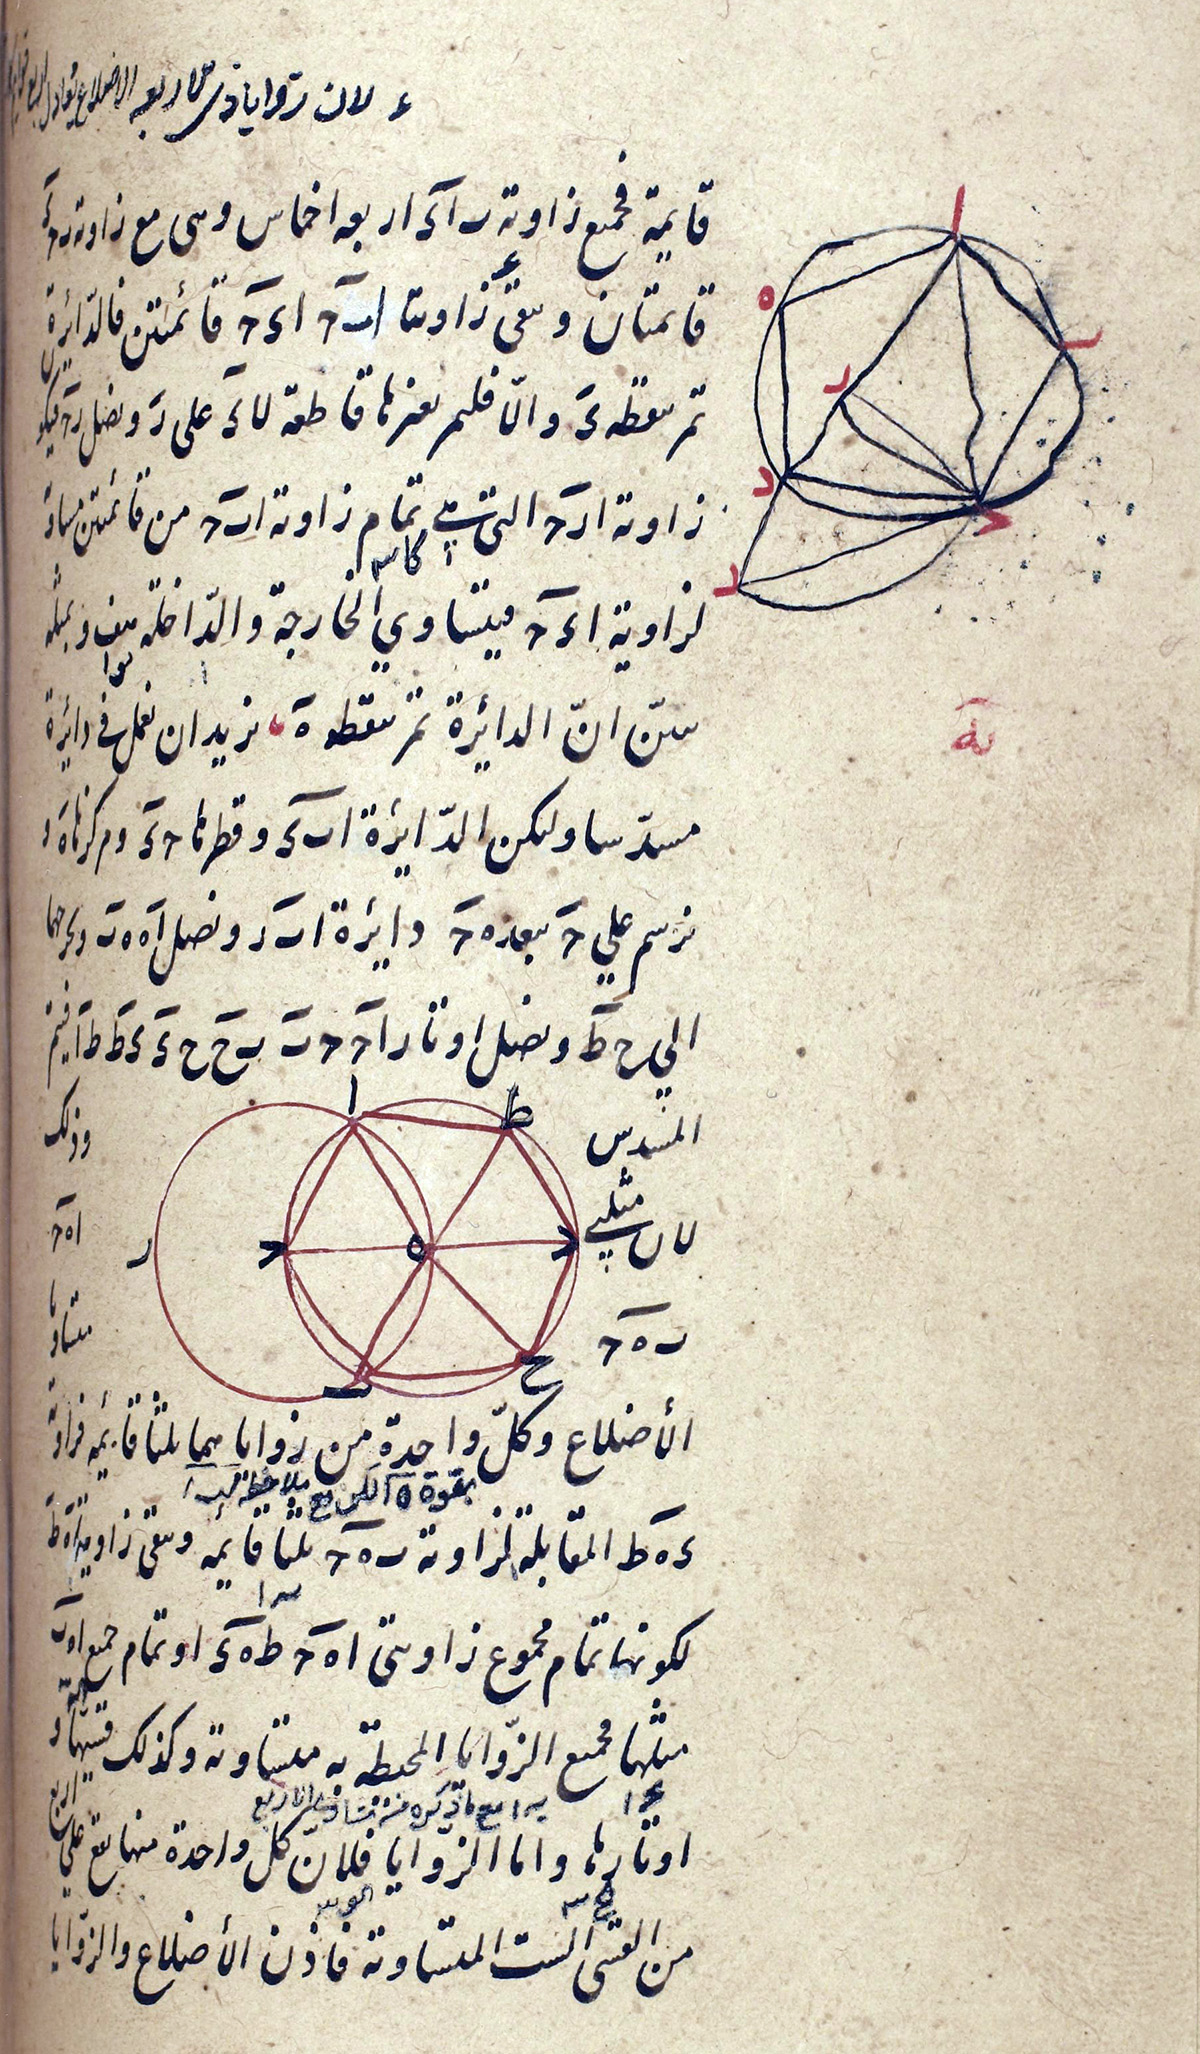 لان زوايا ذى الاربعة الاضلاع تعادل اربع
قايمة فجميع زاوية ب ا ى اربعه اخماس وهى مع زاوية
قايمتان وبقى زاويتا ا ب ح ا ى ح قائمتين فالدائرة
تمر بنقطه ى والا فليمر بغيرها قاطعة لا ى على ر ونصل ر ح فيكون
زاوية ا ر ح التى هى تمام زاوية ا ب ح من قائمتين مساوية
لزاوية ا ى ح فيتساوي الخارجة والداخلة هف وبمثله
نبين ان الدائرة تمر بنقطه ه نريد ان نعمل فى دائرة
يه
مسدسا وليكن الدايرة ا ب ى وقطرها ح ى ومركزها ه و
نرسم علي ح ببعد ه ح دايرة ا ب ر ونصل ا ه ه ب ونخرجهما
الي ح ط ونصل اوتار ا ح ح ب ب ح ح ى ى ط ط ا فيتم
المسدس وذلك
لان مثلثي ا ه ح
ب ه ح متساويا
ا
ط
ح
ه
ر
ب
ح
الأضلاع وكل واحدة من زوايا هما ثلثا قايمه فزاوية
ى ه ط المقابلة لزاوية ب ه ح ثلثا قايمه وبقى زاوية ا ه ط
لكونها تمام مجموع زاويتى ا ه ح ط ه ى او تمام جميع ا ه ب
مثلهما فجميع الزوايا المحيطة به متساوية وكذلك قسيها و
اوتارها واما الزوايا فلان كل واحدة منها يقع علي اربع
من القسى الست المتساوية فاذن الأضلاع والزوايا